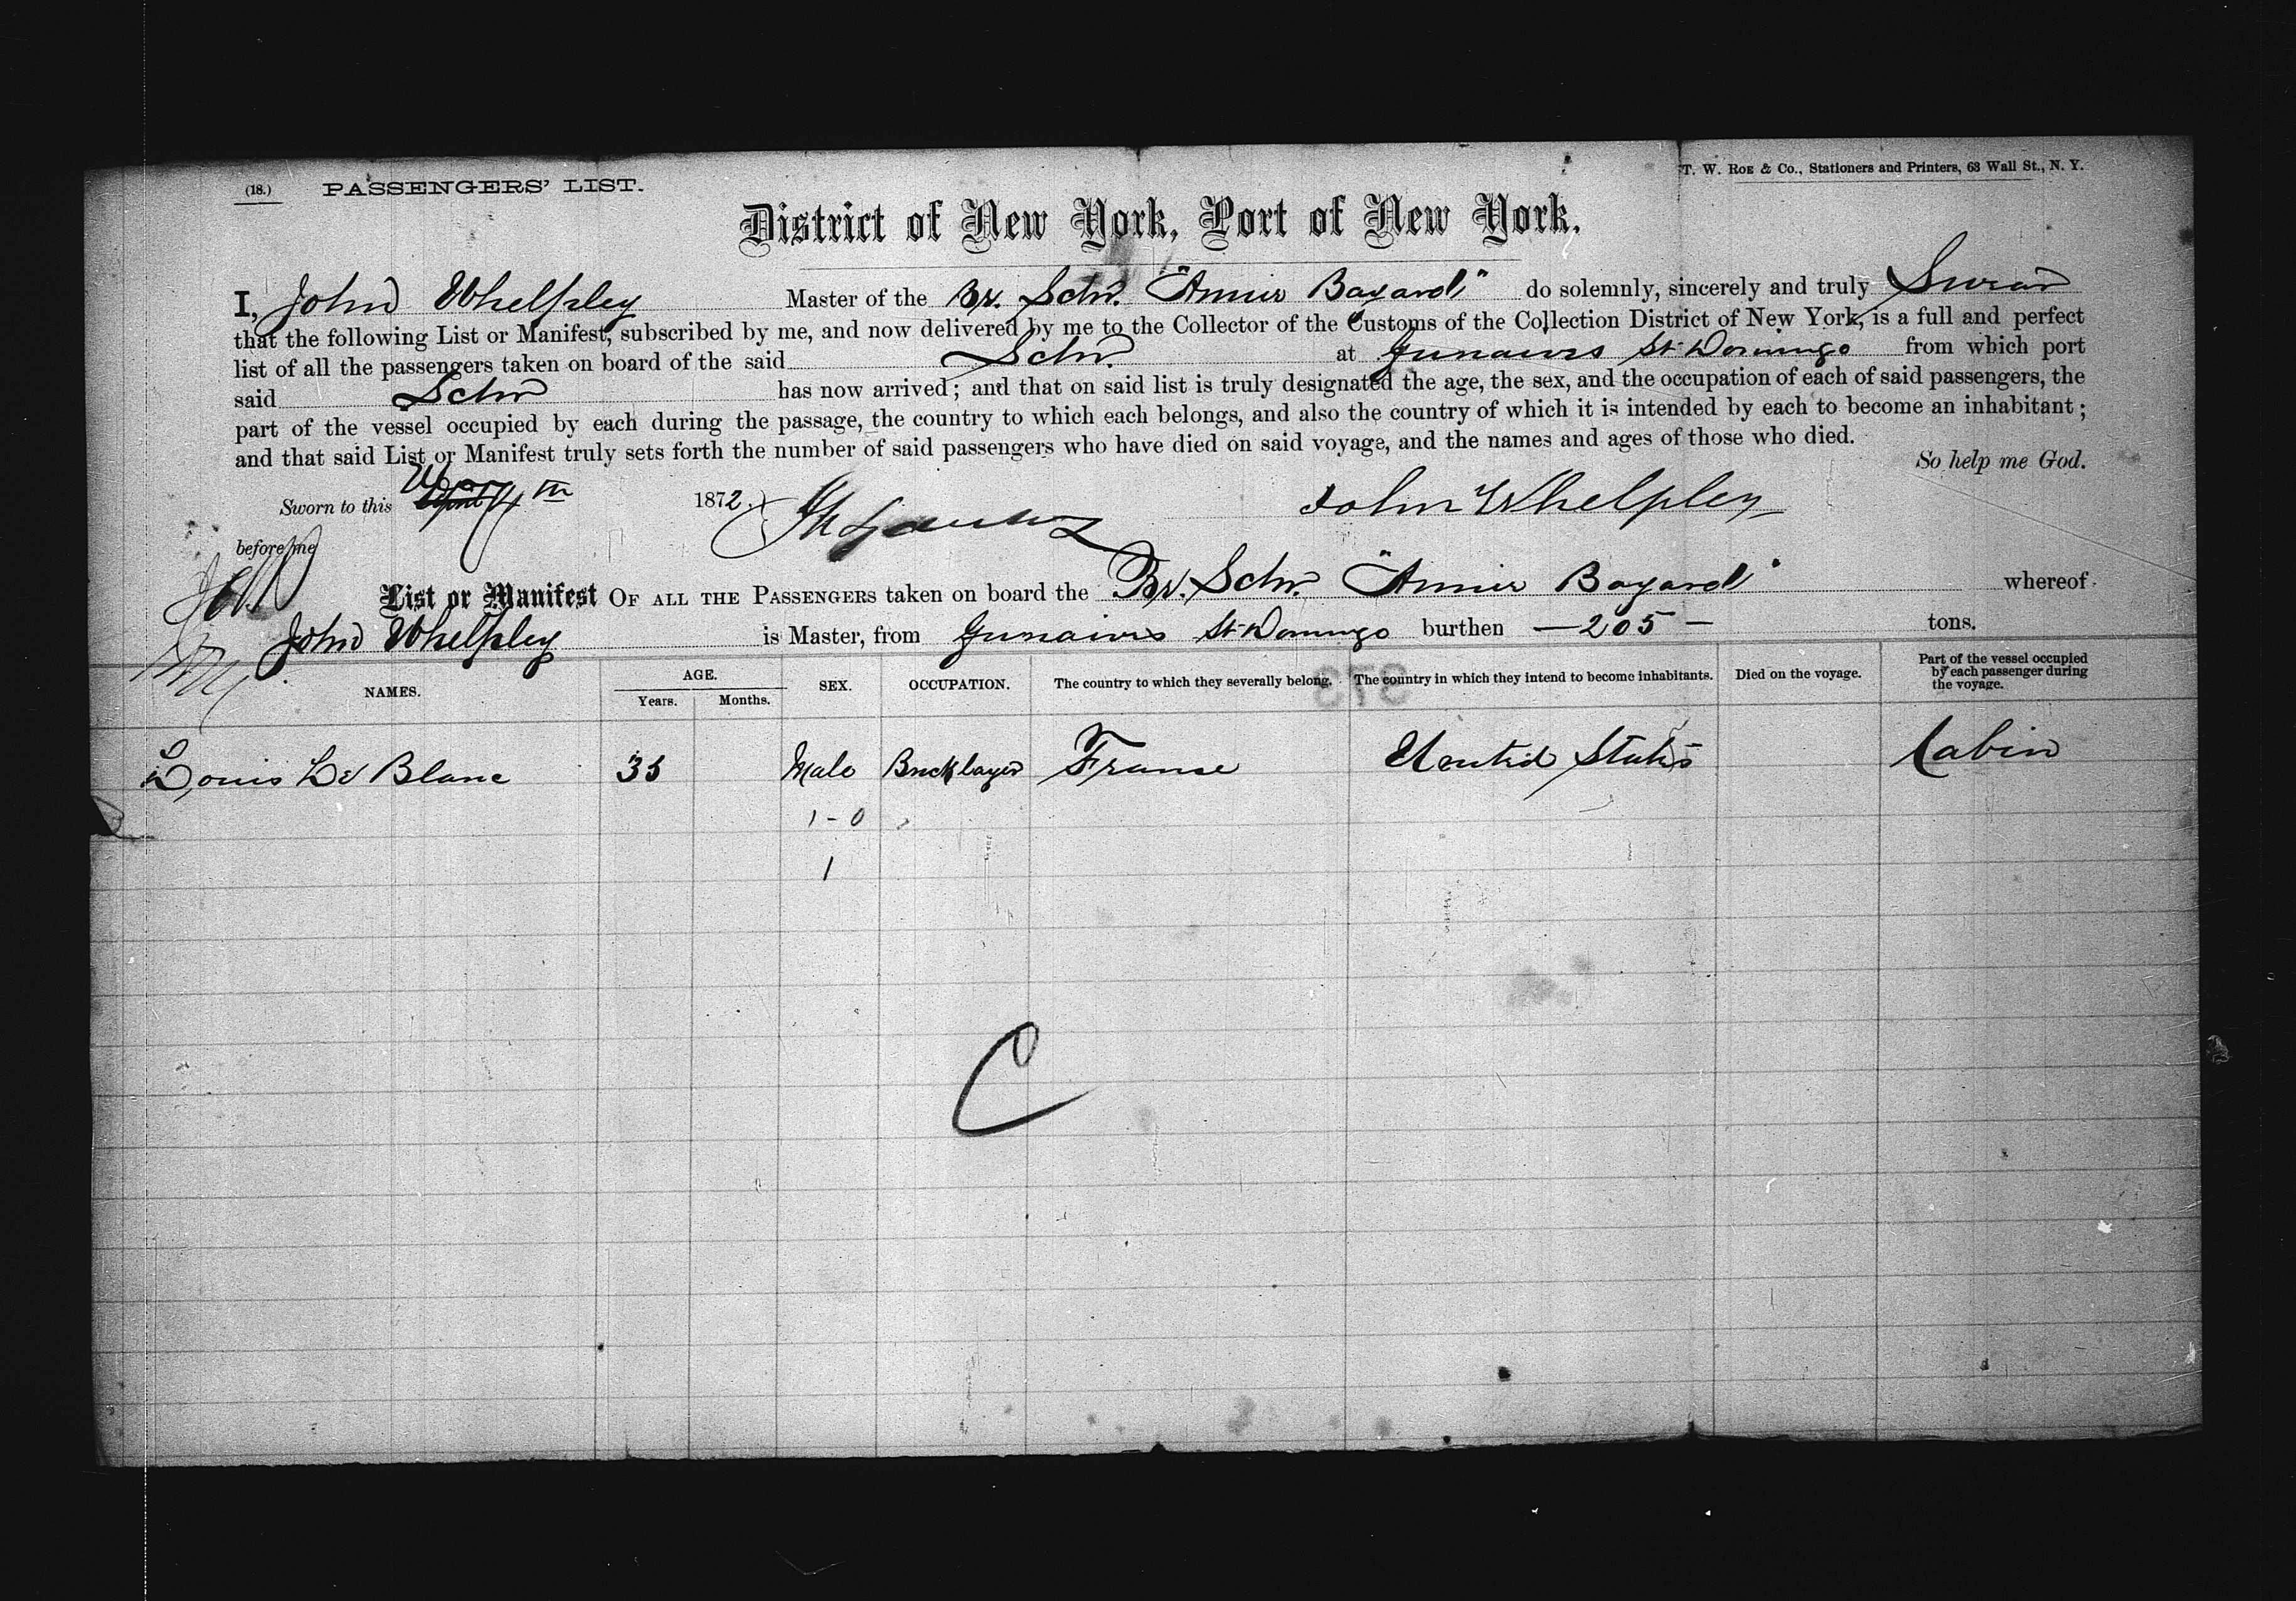 (18.) PASSENGERS' LIST.
T. W. ROE & Co., Stationers and Printers, 63 Wall St., N. Y.
District of New York, Port of New York.
I, John Whelpley Master of the Br. Schr. "Annie Bayard" do solemnly, sincerely and truly Swear
that the following List or Manifest, subscribed by me, and now delivered by me to the Collector of the Customs of the Collection District of New York, is a full and perfect
list of all the passengers taken on board of the said Schr. at Gunaives St Domingo from which port
said Schr has now arrived; and that on said list is truly designated the age, the sex, and the occupation of each of said passengers, the
part of the vessel occupied by each during the passage, the country to which each belongs, and also the country of which it is intended by each to become an inhabitant;
and that said List or Manifest truly sets forth the number of said passengers who have died on said voyage, and the names and ages of those who died.
So help me God.
Sworn to this May 1872. John Whelpley
before me
List or Manifest OF ALL THE PASSENGERS taken on board the Br. Schr. "Annie Bayard" whereof
John Whelpley is Master, from Gunaives St Domingo burthen — 205 — tons.
NAMES. AGE. Years. Months. SEX. OCCUPATION. The country to which they severally belong. The country in which they intend to become inhabitants. Died on the voyage. Part of the vessel occupied by each passenger during the voyage.
Louis Le Blanc 35 Male Bricklayer France United States Cabin
1-0
1
C